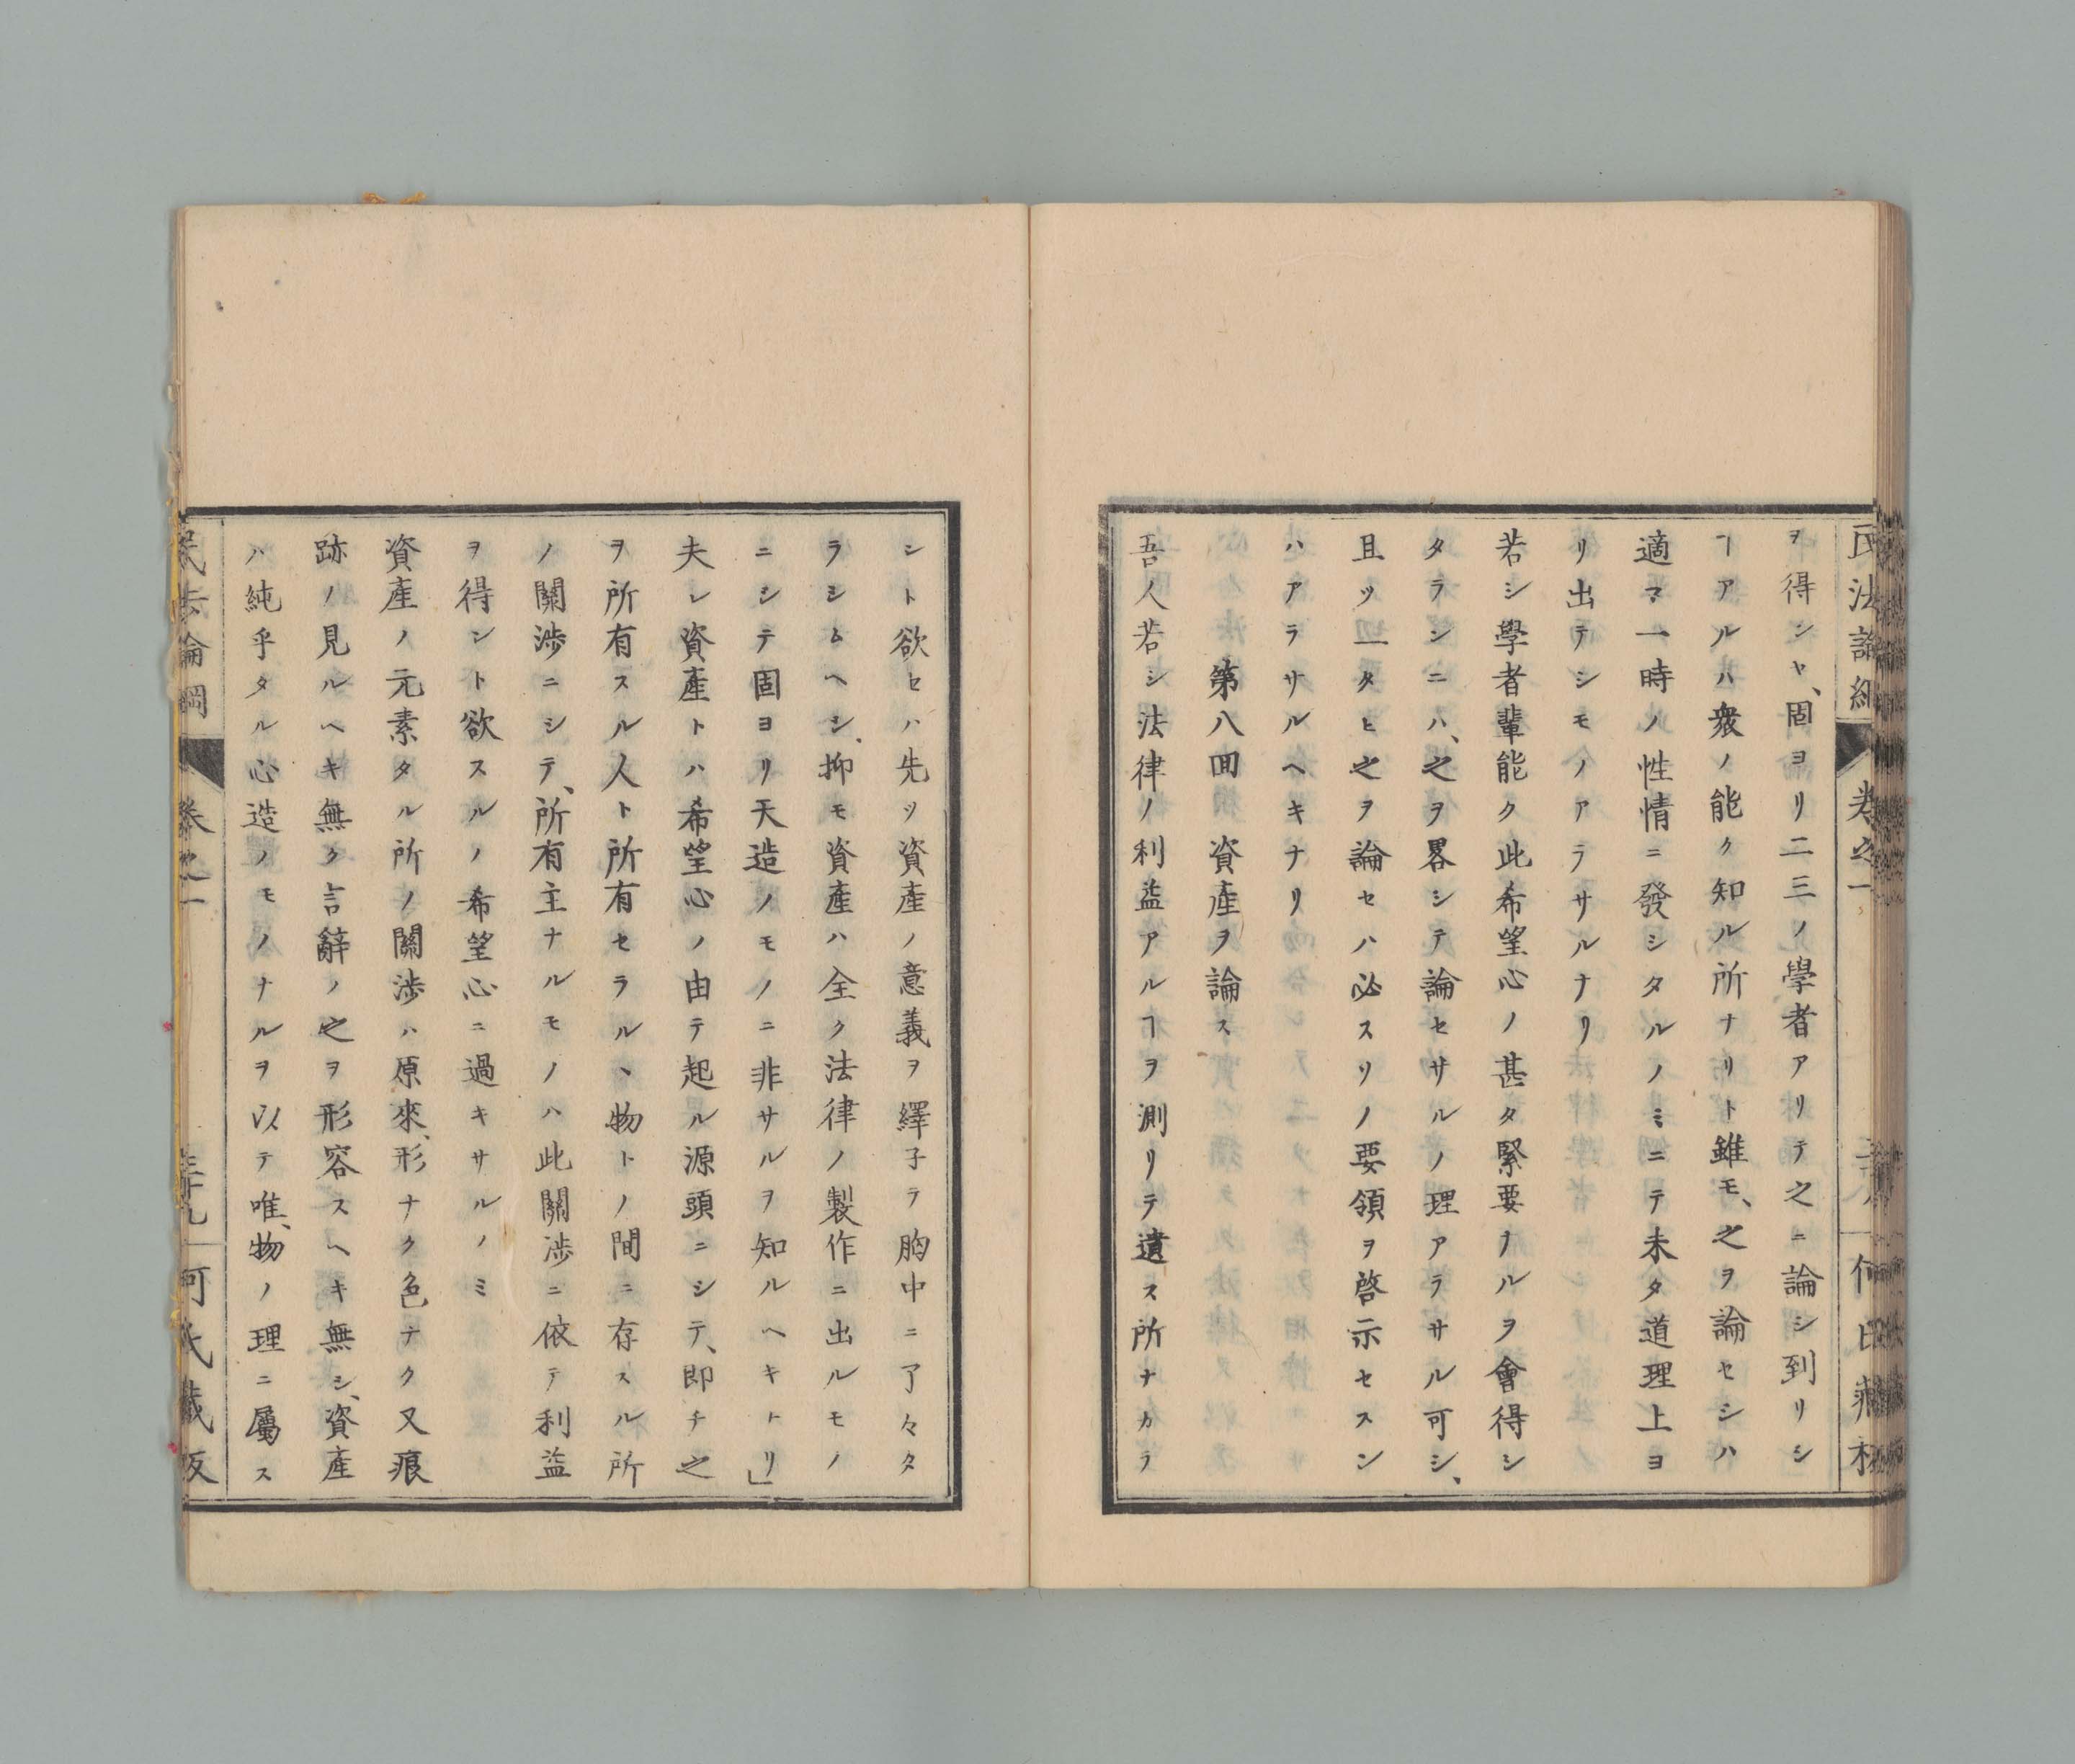 民法論綱
卷之一
ヲ得ンヤ、固ヨリ二三ノ學者アリテ之ニ論シ到リシ
ヿアルハ衆ノ能ク知ル所ナリト雖モ、之ヲ論セシハ
適マ一時ノ性情ニ發シタルノミニテ未タ道理上ヨ
リ出テシモノアラサルナリ
若シ學者輩能ク此希望心ノ甚タ緊要ナルヲ會得シ
タランニハ、之ヲ畧シテ論セサルノ理アラサル可シ、
且ツ一タヒ之ヲ論セハ必スリノ要領ヲ啓示セスン
ハアラサルヘキナリ
第八囘 資產ヲ論ス
吾人若シ法律ノ利益アルヿヲ測リテ遺ス所ナカラ
シト欲セハ先ツ資產ノ意義ヲ繹子テ胸中ニ了々タ
ラシムヘシ、抑モ資產ハ全ク法律ノ製作ニ出ルモノ
ニシテ固ヨリ天造ノモノニ非サルヲ知ルヘキトリ」
夫レ資產トハ希望心ノ由テ起ル源頭ニシテ、即チ之
ヲ所有スル人ト所有セラルヽ物トノ間ニ存スル所
ノ關涉ニシテ、所有主ナルモノハ此關涉ニ依テ利益
ヲ得ント欲スルノ希望心ニ過キサルノミ
資產ノ元素タル所ノ關涉ハ原來、形ナク色ナク又痕
跡ノ見ルヘキ無ク言辭ノ之ヲ形容スヘキ無シ、資產
ハ純乎タル心造ノモノナルヲ以テ唯、物ノ理ニ屬ス
民法論綱
卷之一
三十九
何氏藏板